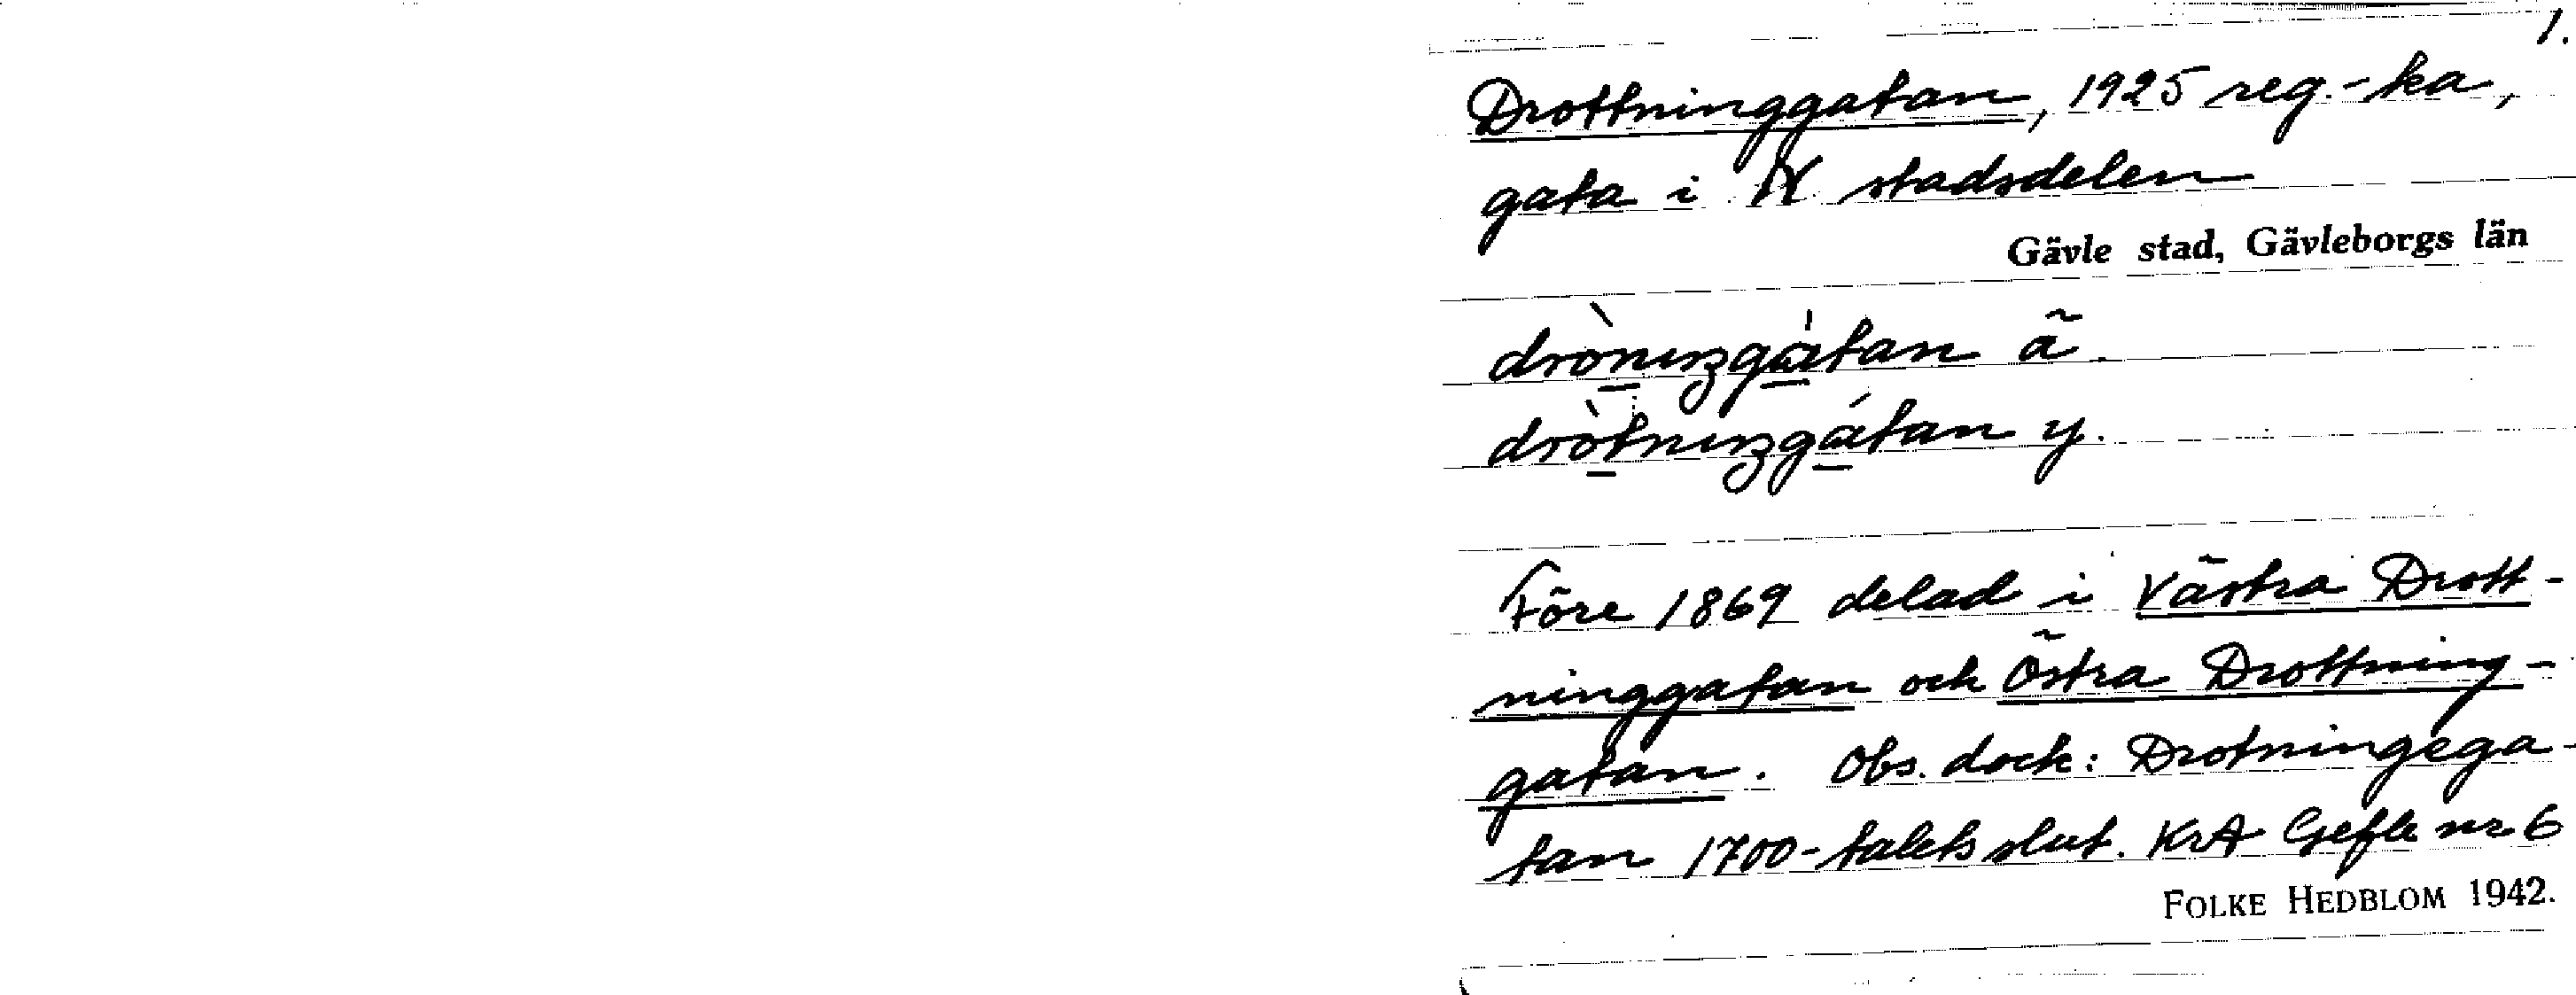 1.
Drottninggatan, 1925 reg.-ka,
gata i N stadsdelen
Gävle stad, Gävleborgs län
drònıŋgátan ä.
dròtnıŋgátan y.
Före 1869 delad i Västra Drott-
ninggatan och Östra Drottning-
gatan. Obs. dock: Drotningega-
tan 1700-talets slut. KrA Gefle nr 6
FOLKE HEDBLOM 1942.